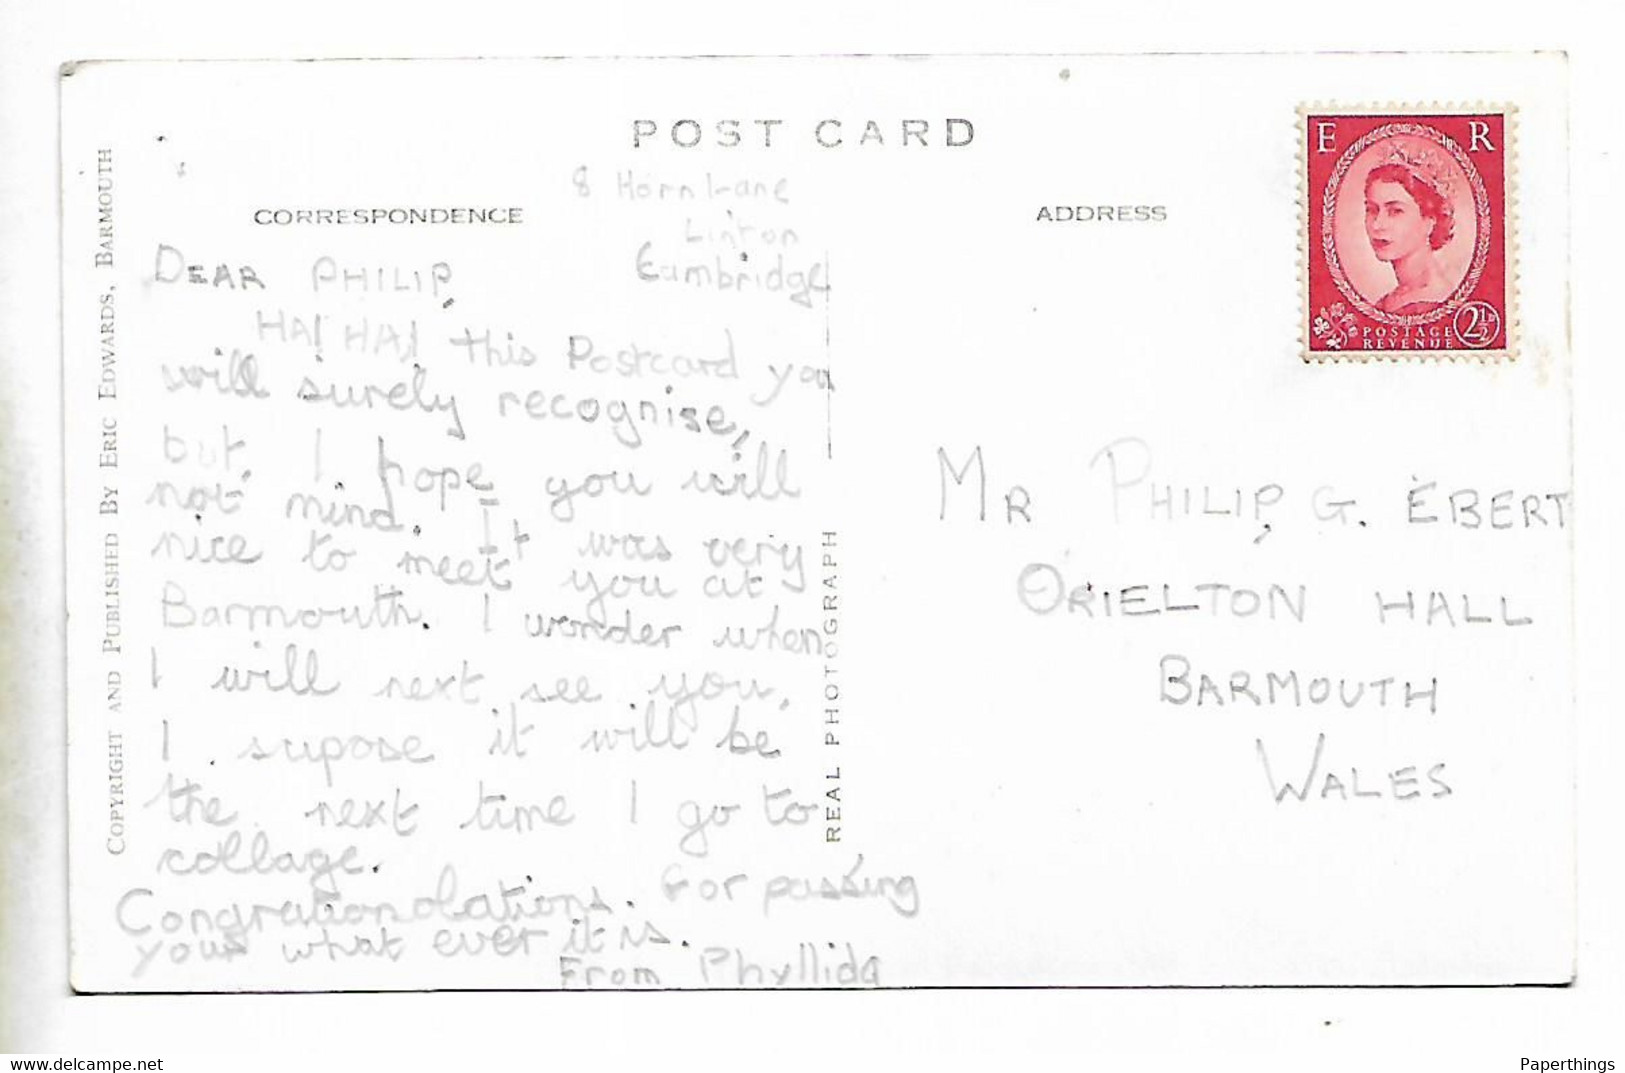 POST CARD
CORRESPONDENCE
ADDRESS
8 Horn Lane
Linton
Cambridge
DEAR PHILIP,
HA! HA! this Postcard you
will surely recognise,
but, I hope you will
not mind. It was very
nice to meet you at
Barmouth. I wonder when
I will next see you,
I supose it will be
the next time I go to
collage.
Congrationolations. For passing
your what ever it is.
From Phyllida
COPYRIGHT AND PUBLISHED BY ERIC EDWARDS, BARMOUTH
REAL PHOTOGRAPH
E R
POSTAGE
REVENUE
2½D
MR PHILIP, G. EBERT
ORIELTON HALL
BARMOUTH
WALES
delcampe.net
Paperthings